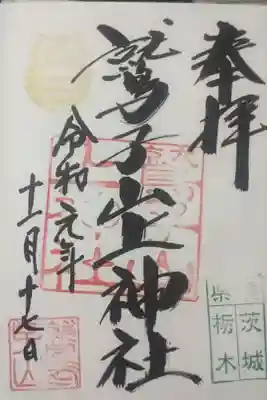 奉拝
鷲子山上神社
令和元年
十一月十七日
茨城
栃木